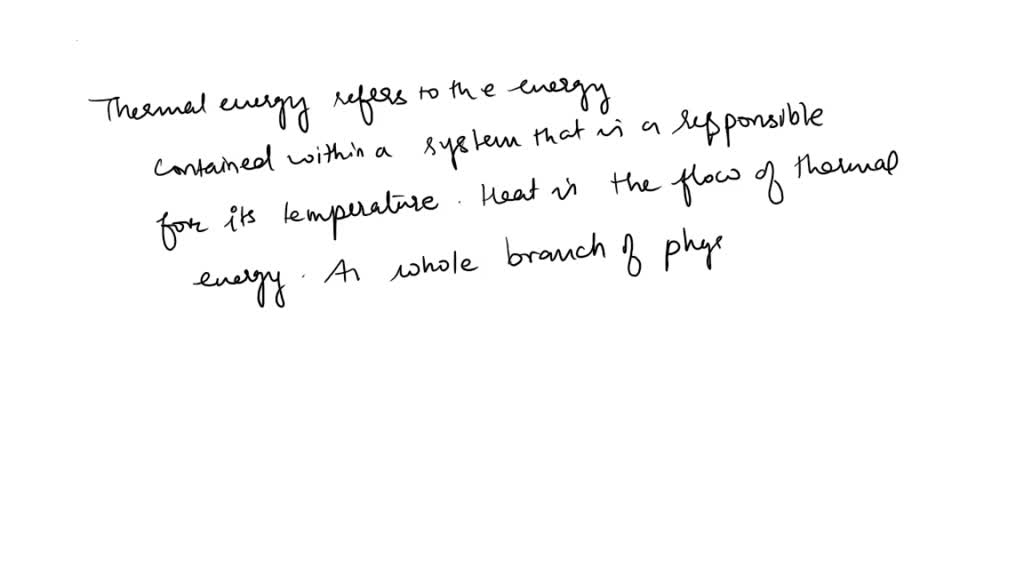 Thermal energy refers to the energy
contained within a system that is a responsible
for its temperature. Heat is the flow of thermal
energy. A whole branch of phys